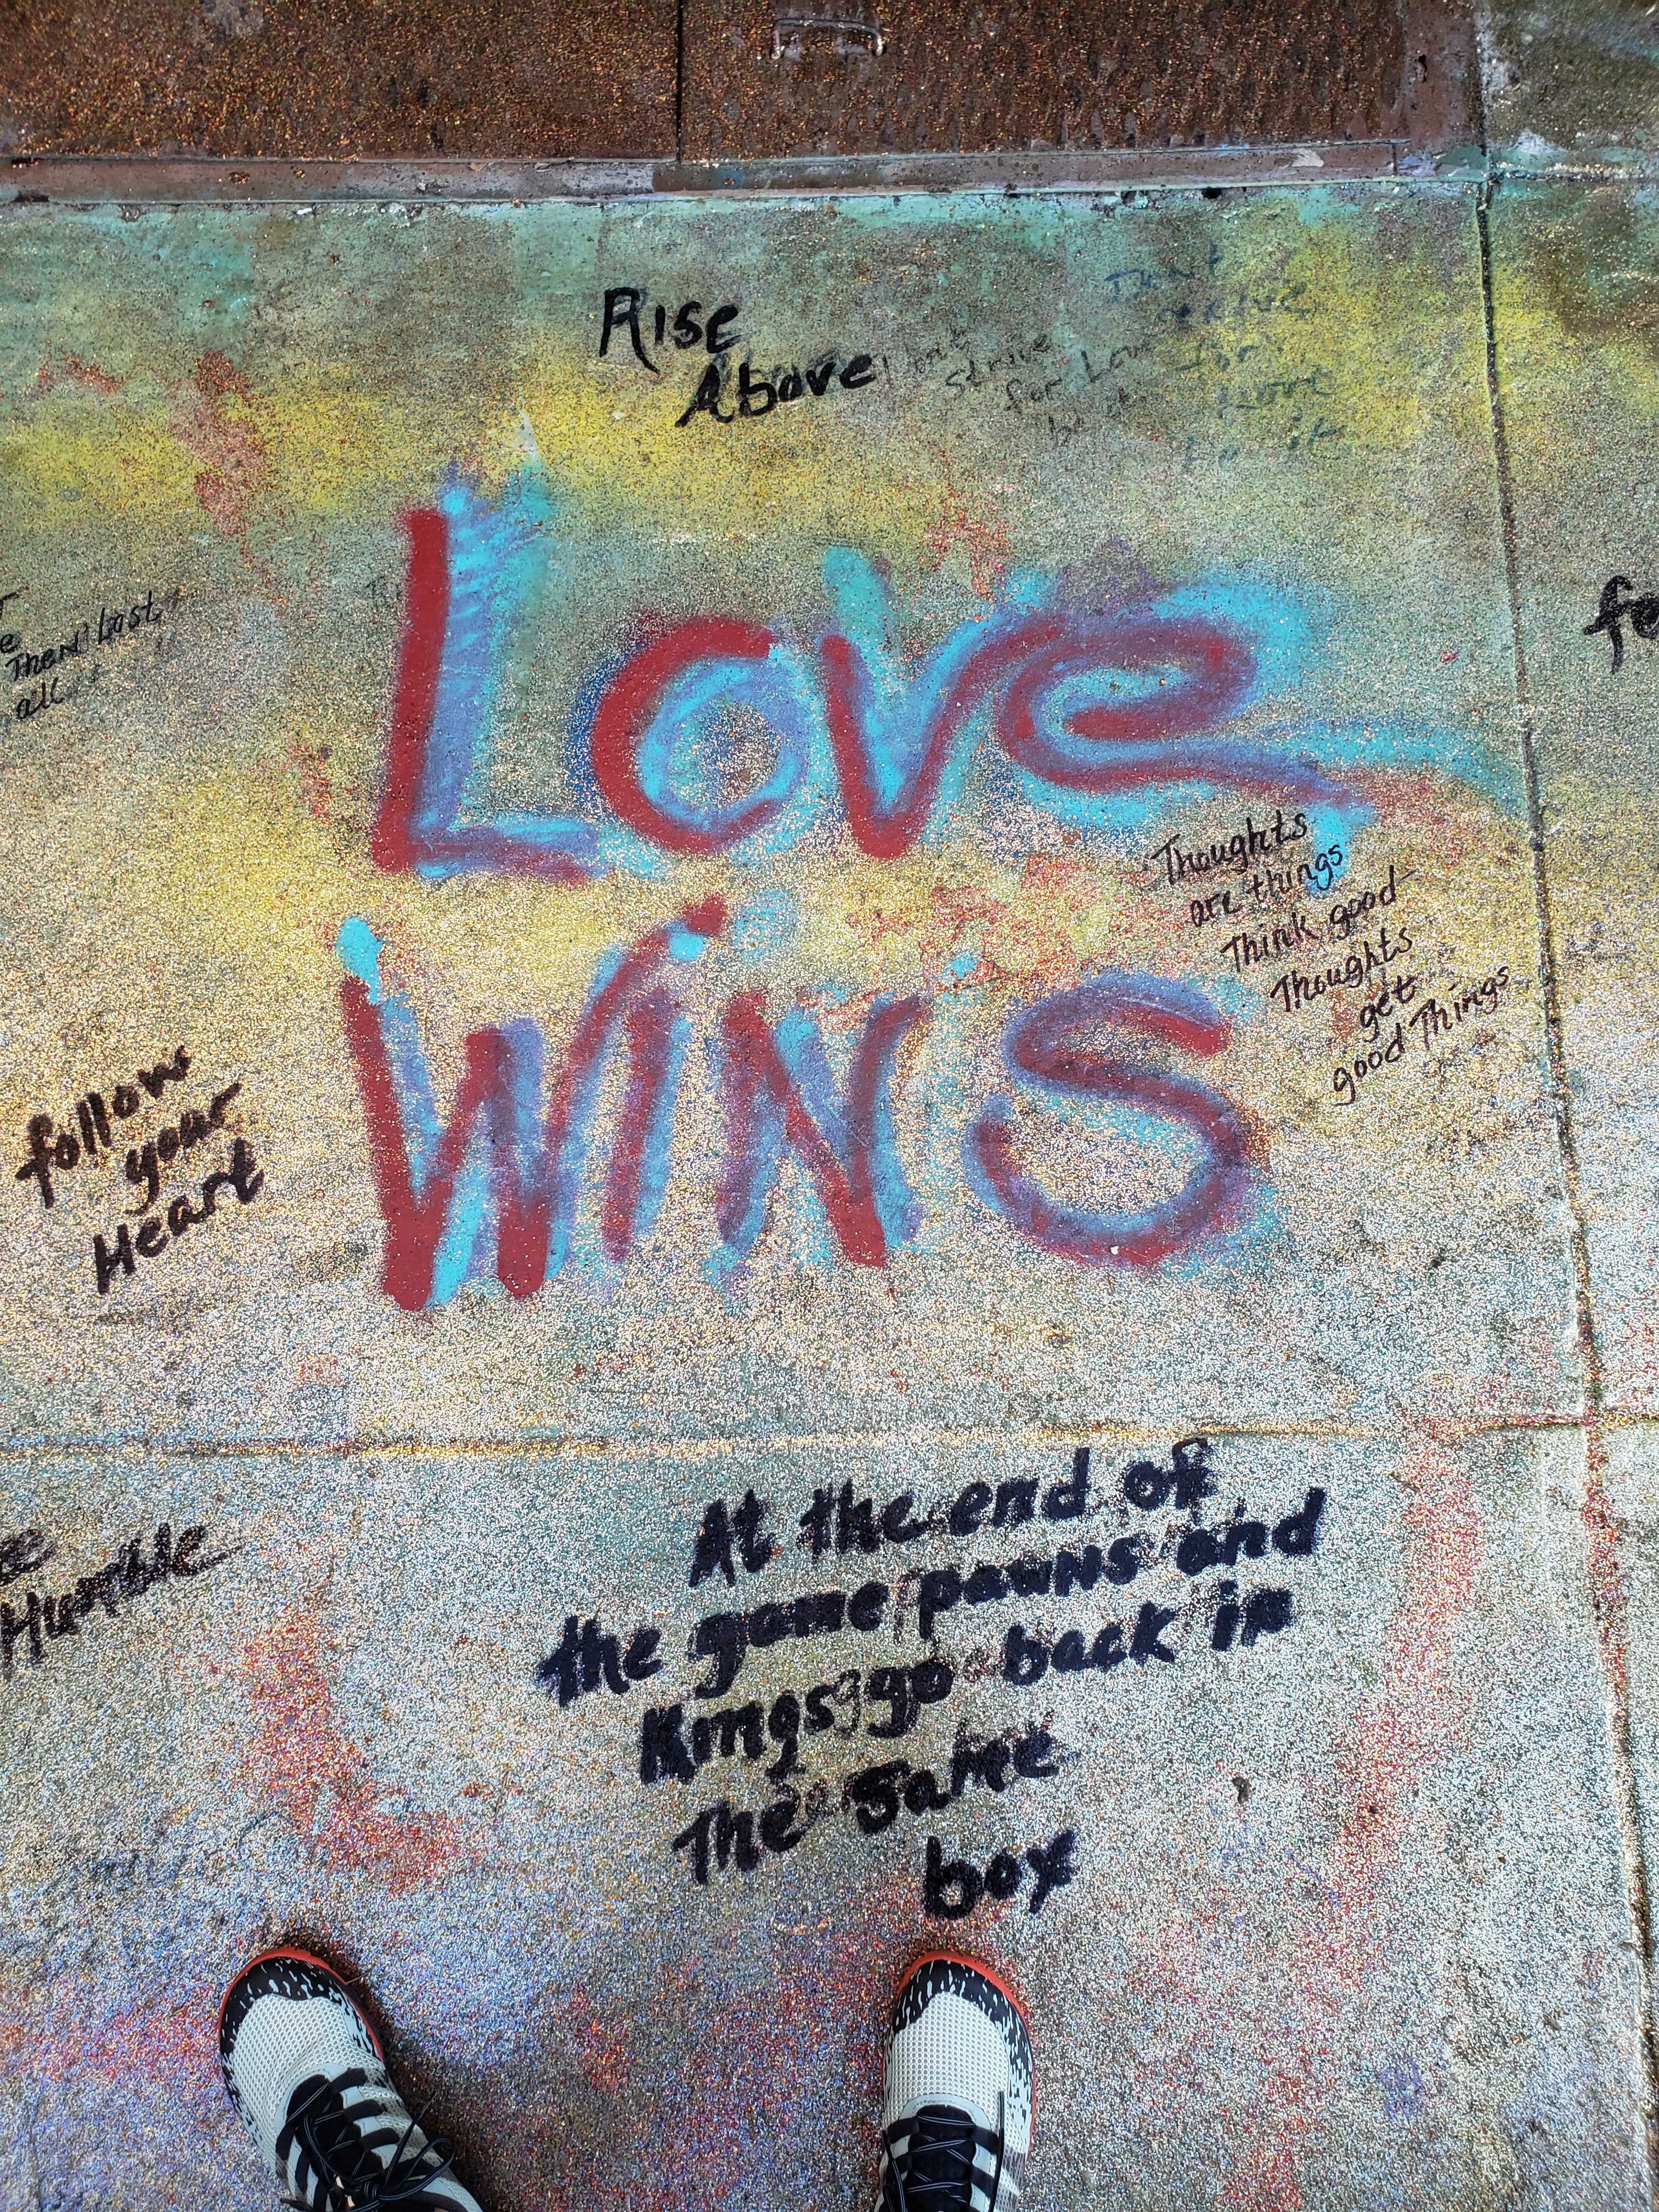 Rise
Above
strive
for Love
Then Last
all
Love
Wins
Thoughts
are things
Think good
Thoughts
get
good Things
follow
your
Heart
Humble
At the end of
the game pawns and
Kings go back in
The same
box